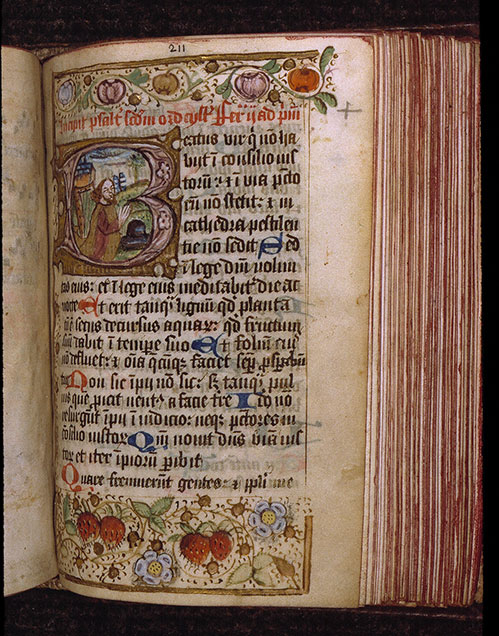 211
Incipit psalt' scdm ord cyst' Fer ij ad pm
Beatus vir q nō ha
buit ī consilio imp
iorum: ⁊ ī via pcto
rū nō stetit: ⁊ in
cathedra pestilen
tie nō sedit Sed
ī lege dni volun
tas eius: et ī lege eius meditabit' die ac
nocte Et erit tanq̄ lignum qd' planta
tū ē secus decursus aquar: qd' fructum
suū dabit ī tempe suo Et folium eius
nō defluet: ⁊ oīa q̄cūq̄ faciet semp psperabun
tur Non sic īpij nō sic: sz tanq̄ pul
uis que picit uent' a facie tre Ido nō
resurgūt ipij ī iudicio: neq̄ pctores in
cōsilio iustor Qm̄ nouit dūs viā ius
tor et iter īpiorū pibit
Quare fremuerūt gentes: ⁊ ppli me